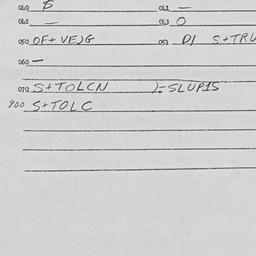 040 B 041 —
042 — 043 O
050 OF+ VE)G 051 DI S+TRU
060 —
070 S+TOLCN )=SLUP1S
900 S+TOLC